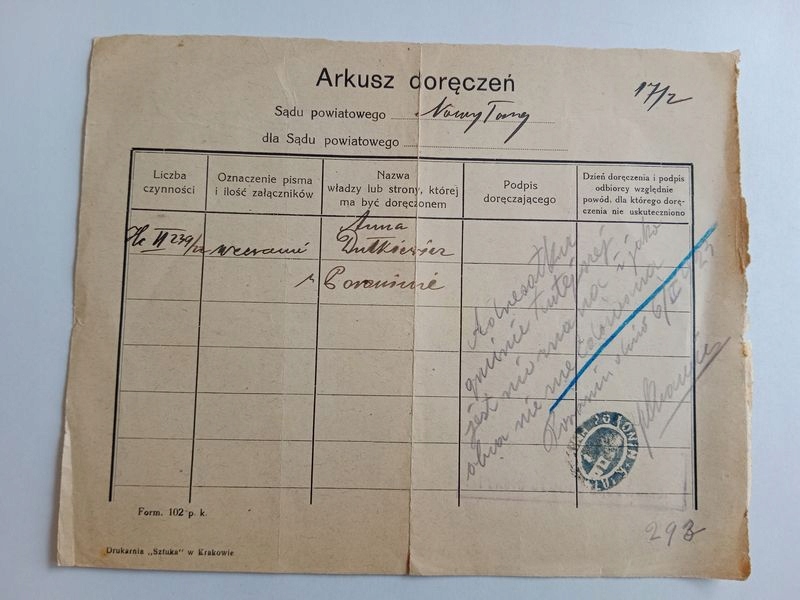 Arkusz doręczeń
17/2
Sądu powiatowego Nowy Targ
dla Sądu powiatowego
Liczba czynności
Oznaczenie pisma i ilość załączników
Nazwa władzy lub strony, której ma być doręczonem
Podpis doręczającego
Dzień doręczenia i podpis odbiorcy względnie powód, dla którego doręczenia nie uskuteczniono
II 239/22
wezwanie
Anna
Dutkiewicz
w Poroninie
Adresatka
gminie tutejszej
jest nie znana i jako
obca nie meldowana
Poronin dnia 6/II 1923
293
Form. 102 p. k.
Drukarnia „Sztuka" w Krakowie